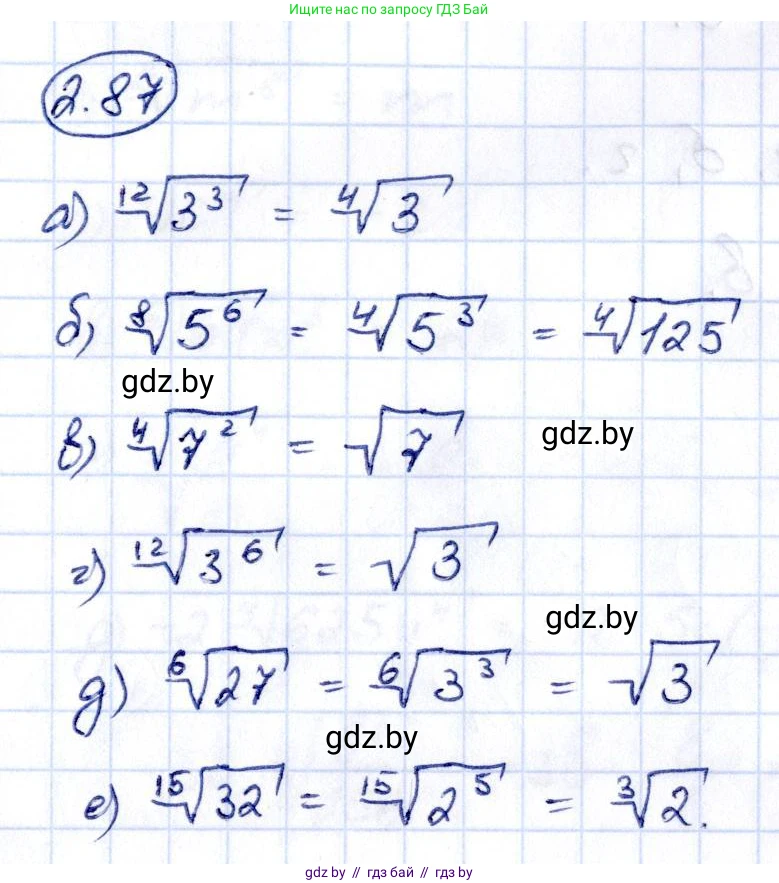 Ещё нас по запросу ГДЗ Бай
2.87
а) ¹²√3³ = ⁴√3
б) ⁸√5⁶ = ⁴√5³ = ⁴√125
gdz.by
в) ⁴√7² = √7
gdz.by
г) ¹²√3⁶ = √3
gdz.by
д) ⁶√27 = ⁶√3³ = √3
gdz.by
е) ¹⁵√32 = ¹⁵√2⁵ = ³√2.
gdz.by // гдз бай // гдз by